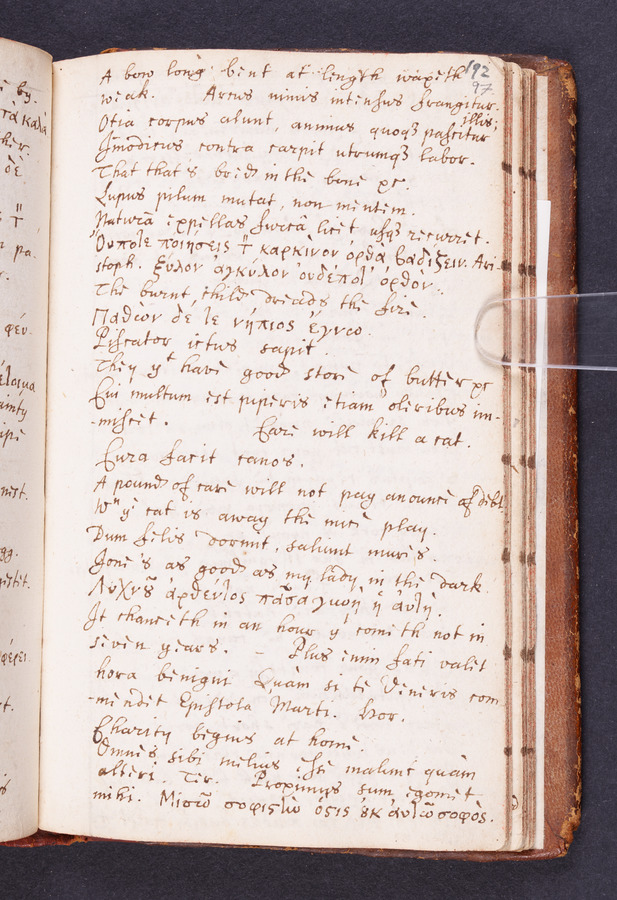 192
97
A bow long bent at length waxeth
weak. Arcus nimis intensus frangitur.
Otia corpus alunt, animus quoqȝ pascitur illis;
Imodicus contra carpit utrumqȝ labor.
That that's bred in the bone &c.
Lupus pilum mutat, non mentem.
Naturā expellas furcâ licet usqȝ recurret.
Ὄυποτε ποιήσεις τ̄ καρκίνον ὀρθὰ βαδίζειν. Ari-
stoph. ξύλον ἀγκύλον ὀυδέποτ' ὀρθόν.
The burnt child dreads the fire.
Παθὼν δὲ τε νήπιος ἔγνω.
Piscator ictus sapit.
They yt have good store of butter &c
Cui multum est piperis etiam oleribus im-
-miscet. Care will kill a cat.
Cura facit canos.
A pound of care will not pay anounce of debt.
Wn ye cat is away the mice play.
Dum felis dormit, saliunt mures.
Jone's as good as my lady in the dark.
Λυχνȣ ἀρθέντος πᾶσα γυνὴ ἡ ἀυτή.
It chanceth in an hour yt cometh not in
seven years. - Plus enim fati valet
hora benigni Quàm si te Veneris com
-mendet Epistola Marti. Hor.
Charity begins at home.
Omnes sibi melius esse malunt quàm
alteri. Ter. Proximus sum egomet
mihi. Μισῶ σοφιστὼ ὅςις ȣκ ἀυτῶ σοφὸς.
φευ.
mist.
pa-
δὲ
by.